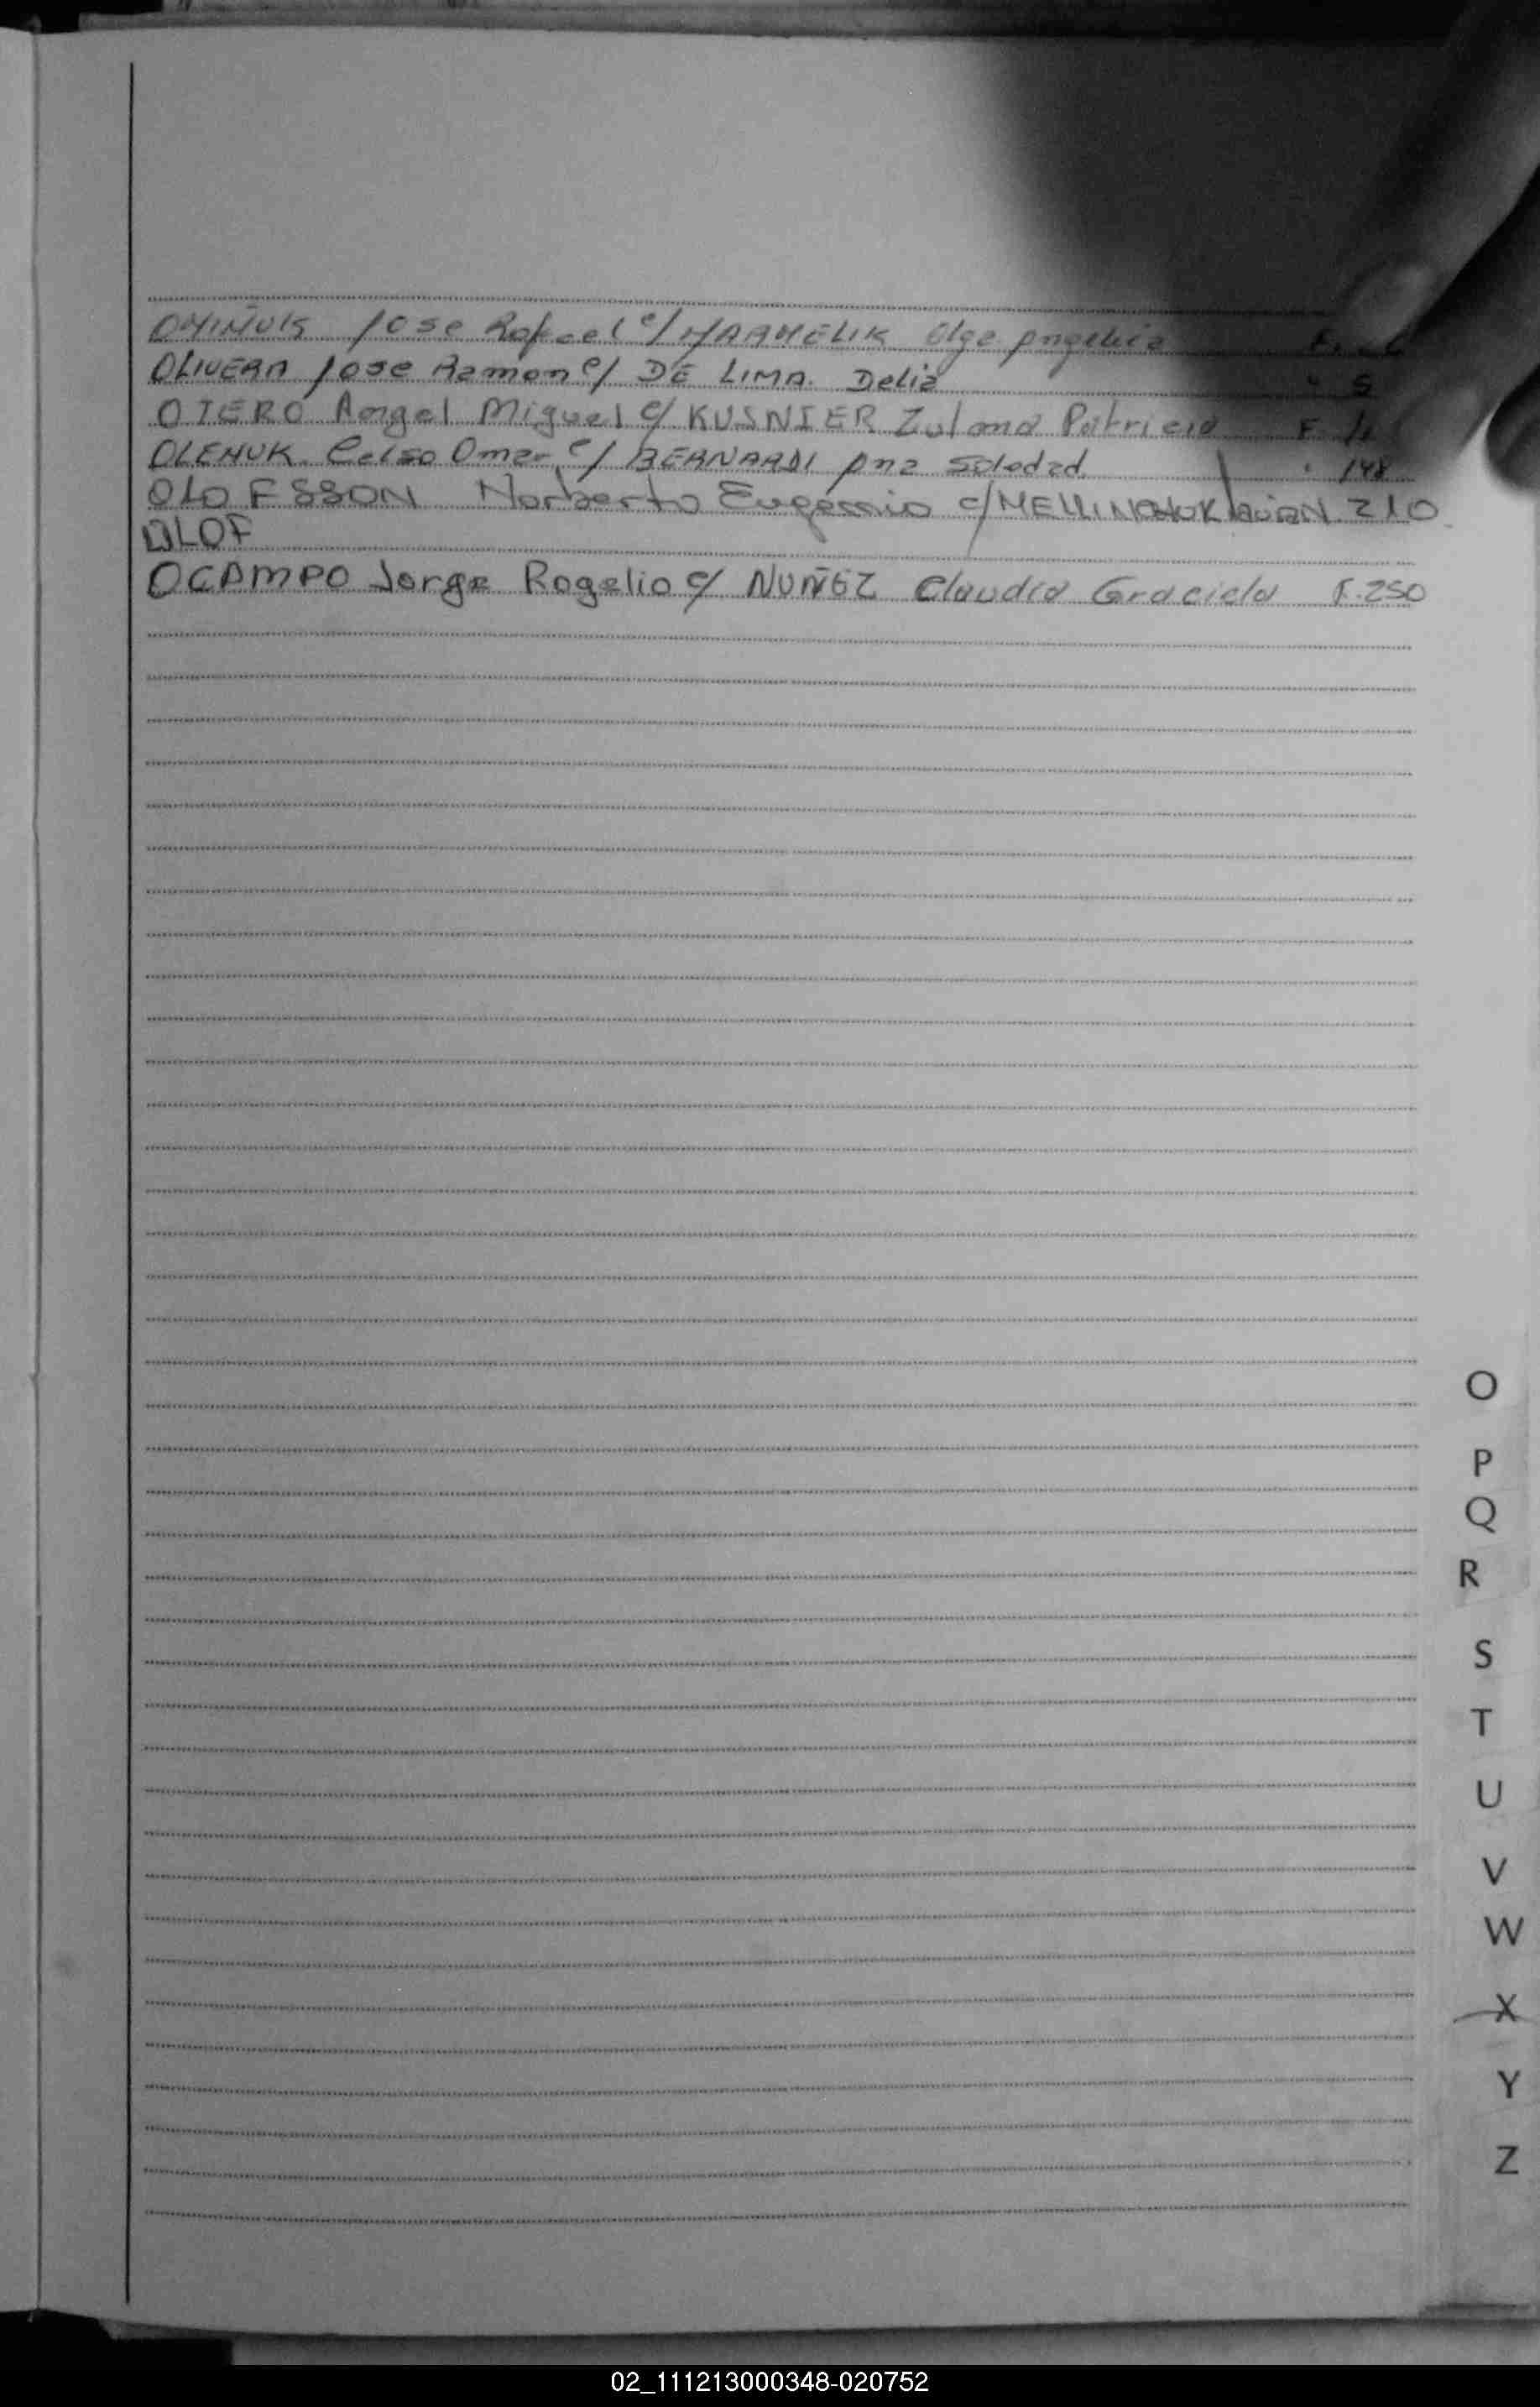 Jose Rafael c/ Olga Angelica F.
OLIVERA Jose Ramon c/ DE LIMA Delia " 5
OTERO Angel Miguel c/ KUSNIER Zulma Patricia F.
OLENUK Celso Omar c/ BERNARDI Ana Soledad " 148
OLOFSSON Norberto Eugenio c/ 210
OLOF
OCAMPO Jorge Rogelio c/ NUÑEZ Claudia Graciela F. 250
O
P
Q
R
S
T
U
V
W
X
Y
Z
02_111213000348-020752